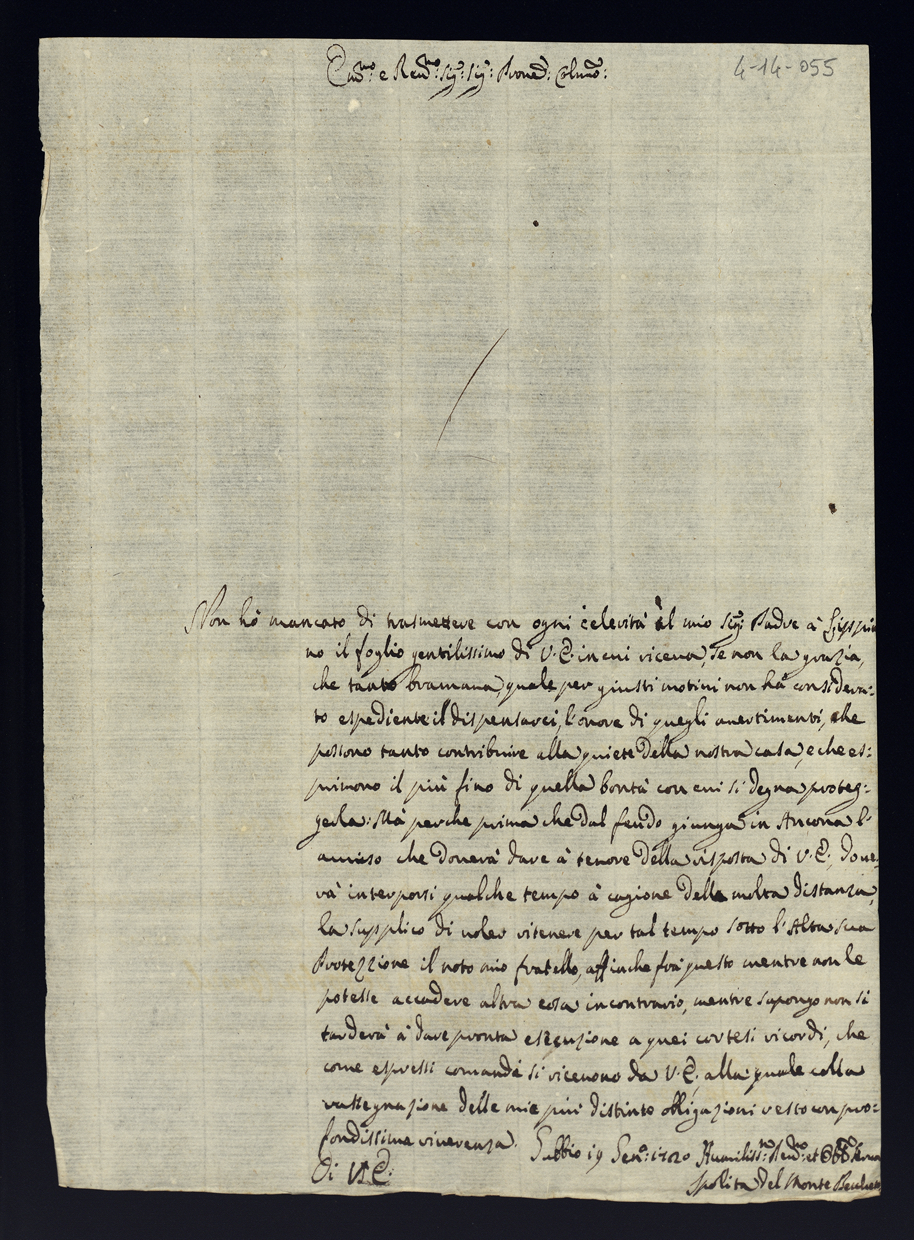 Em.mo e Rev.mo Sig.r Sig.r Pron.e Col.mo:
4-14-055
Non hò mancato di trasmettere con ogni celerità al mio Sig.r Padre à Gippi-
no il foglio gentilissimo di V. E. in cui riceua, se non la grazia,
che tanto bramaua, quale per giusti motiui non hà considera:
to espediente il dispensarci, l'onore di quegli auertimenti, che
possono tanto contribuire alla quiete della nostra casa, e che es:
primono il più fino di quella bontà con cui si degna proteg:
gerla: Mà perche prima che dal feudo giunga in Ancona l'
auuiso che douerà dare à tenore della risposta di V. E., doue:
rà interporsi qualche tempo à cagione della molta distanza,
la supplico di uoler ritenere per tal tempo sotto l'Alta sua
Protezzione il noto mio fratello, affinche frà questo mentre non le
potesse accadere altra cosa in contrario, mentre supongo non si
tarderà à dare pronta esecuzione a quei cortesi ricordi, che
come espressi comandi si riceuono da V. E. alla quale colla
rassegnazione delle mie più distinte obligazioni resto con pro:
fondissima riuerenza.
Gubbio 19 Gen.o: 1720
Di V. E.
Humiliss.mo Deu.mo et Obb.mo Serua
del Monte